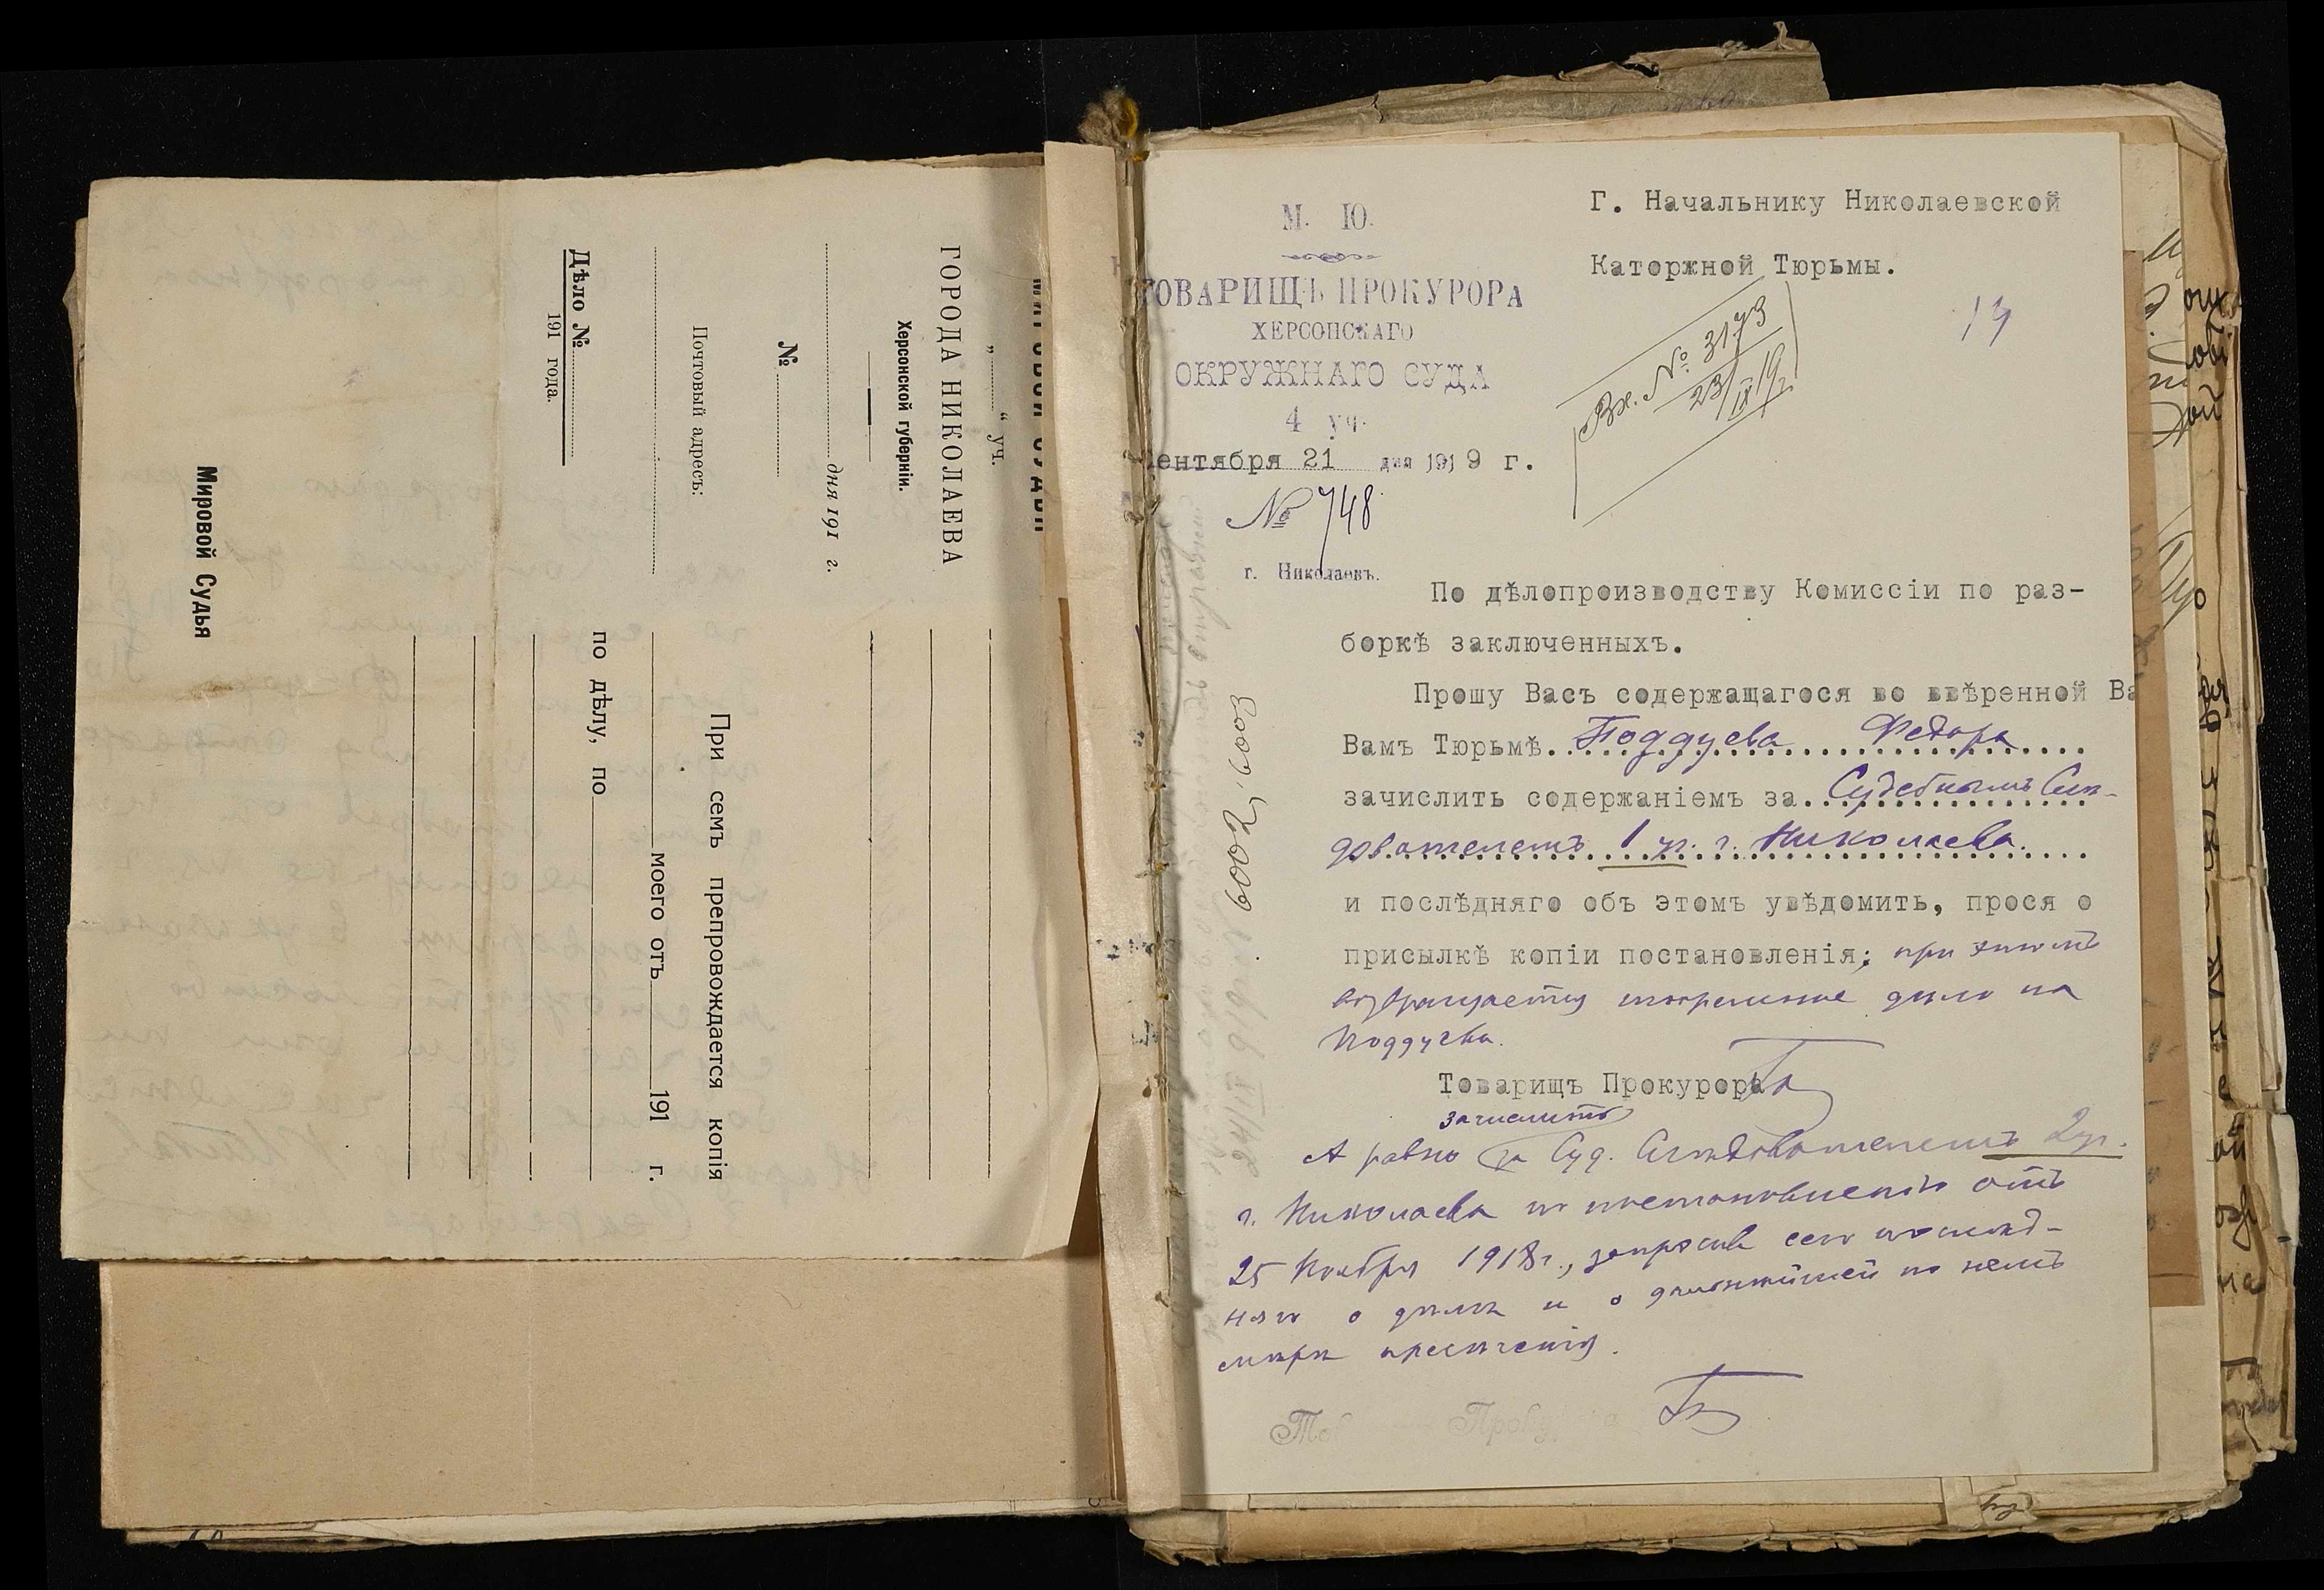 МИРОВОЙ СУДЬЯ
„ “ уч.
ГОРОДА НИКОЛАЕВА
Херсонской губерніи.
дня 191 г.
№
Почтовый адресъ:
Дѣло №
191 года.
При семъ препровождается копія
моего отъ 191 г.
по дѣлу, по
Мировой Судья
М. Ю.
ТОВАРИЩЪ ПРОКУРОРА
ХЕРСОНСКАГО
ОКРУЖНАГО СУДА
4 уч.
ентября 21 дня 1919 г.
№ 748
г. Николаевъ.
Г. Начальнику Николаевской
Каторжной Тюрьмы.
Вх. № 3173
23/IX 19 г.
По дѣлопроизводству Комиссіи по раз-
боркѣ заключенныхъ.
Прошу Васъ содержащагося во ввѣренной Ва
Вамъ Тюрьмѣ Поддуева Федора
зачислить содержаніемъ за Судебнымъ Слѣ-
дователемъ 1 уч. г. Николаева.
и послѣдняго объ этомъ увѣдомить, прося о
присылкѣ копіи постановленія; при этомъ
возвращается тюремное дѣло на
Поддуева.
Товарищъ Прокурора
зачислить
А равно за Суд. Слѣдователемъ 2 уч.
г. Николаева по постановленію отъ
25 Ноября 1918 г., запросивъ сего послѣд-
няго о дѣлѣ и о дальнѣйшей по немъ
мѣрѣ пресѣченія.
6002, 6003
24/IX 919